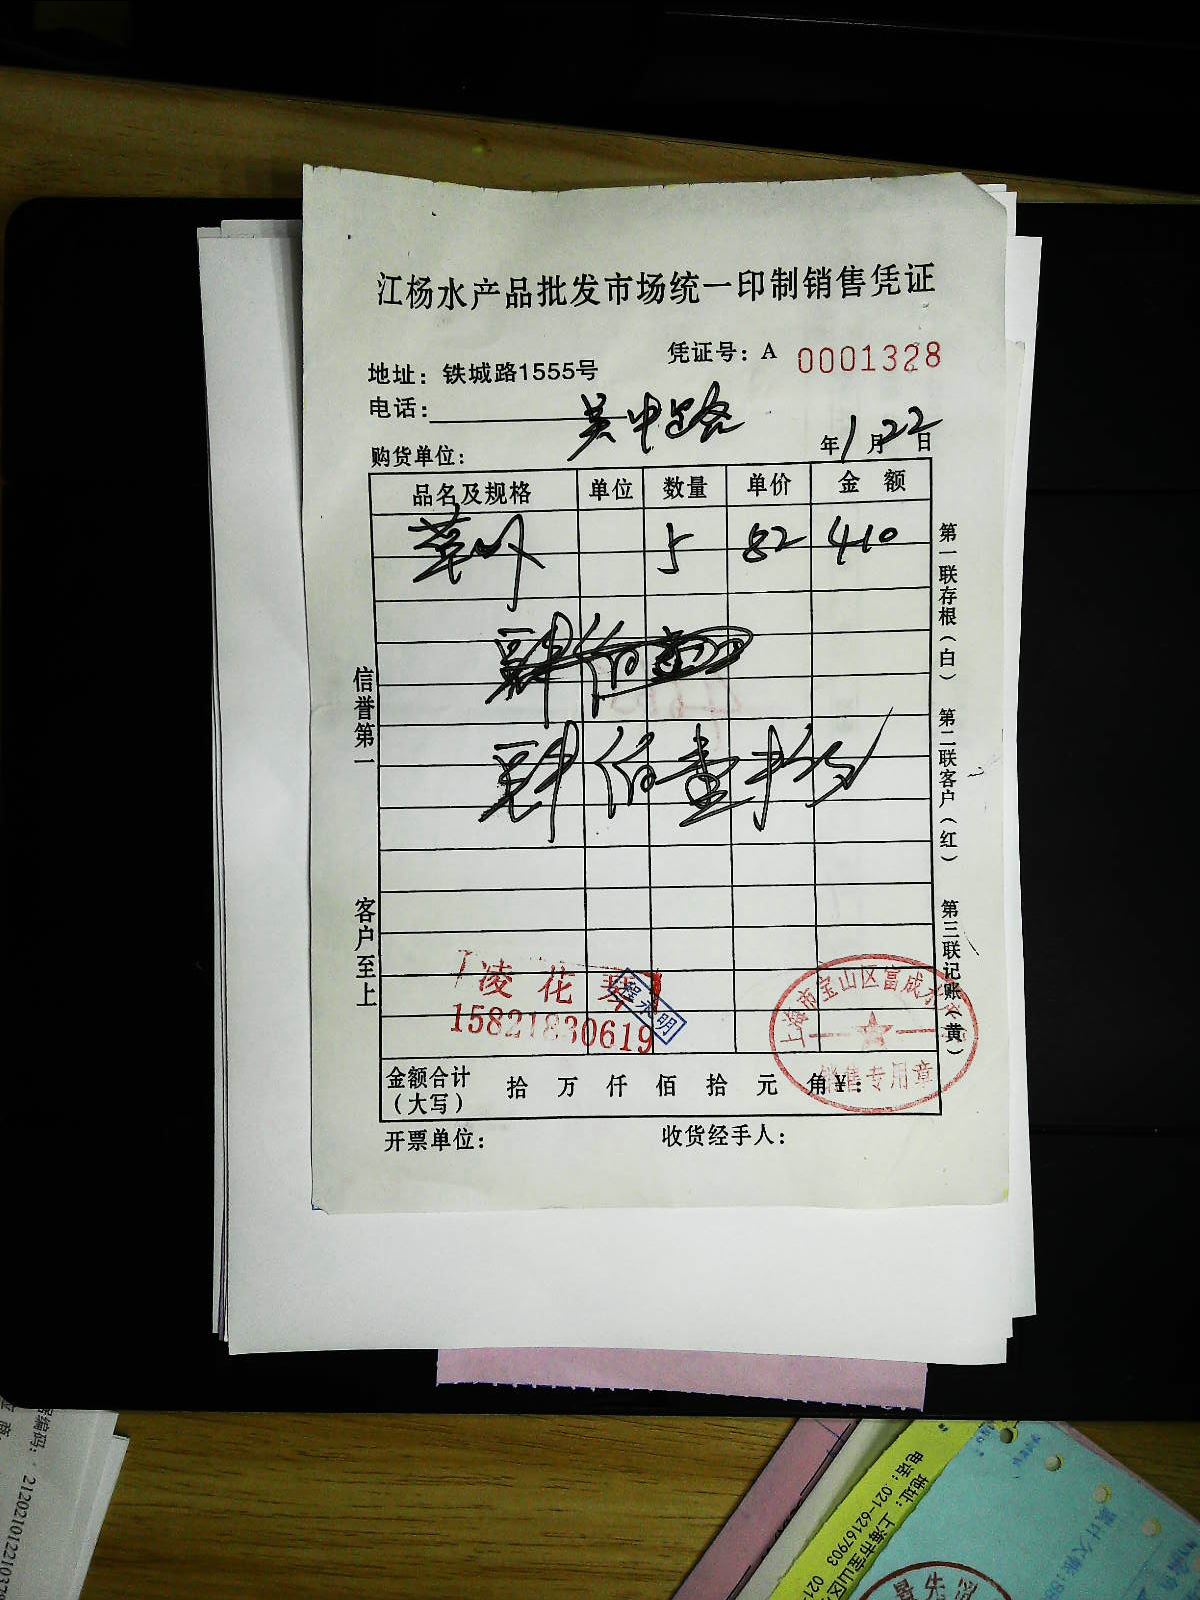 江杨水产品批发市场统一印制销售凭证
凭证号：A 0001328
地址：铁城路1555号
电话：
购货单位：吴中路
年1月22日
品名及规格 单位 数量 单价 金 额
草 5 82 410
肆佰
肆佰壹拾
信誉第一
客户至上
第一联存根（白）
第二联客户（红）
第三联记账（黄）
凌花
15821830619
程永明
上海市宝山区富成水
销售专用章
金额合计（大写） 拾 万 仟 佰 拾 元 角 ¥：
开票单位：
收货经手人：
编码：
2120210122103
地址：上海市宝山区
电话：021-62167903 021